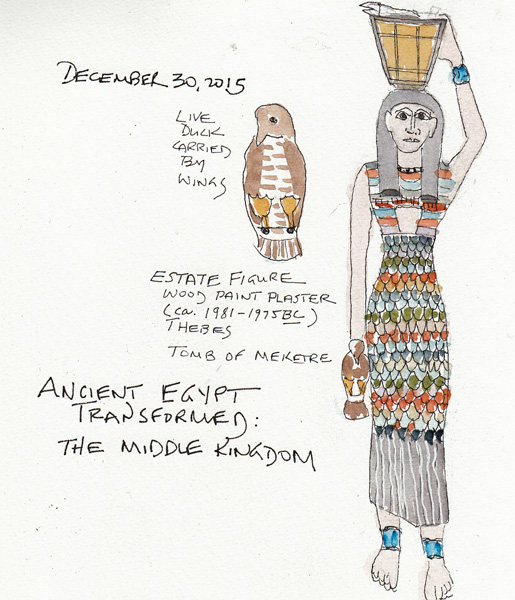 DECEMBER 30, 2015
LIVE
DUCK
CARRIED
BY
WINGS
ESTATE FIGURE
WOOD PAINT PLASTER
(ca. 1981-1975BC)
THEBES
TOMB OF MEKETRE
ANCIENT EGYPT
TRANSFORMED:
THE MIDDLE KINGDOM